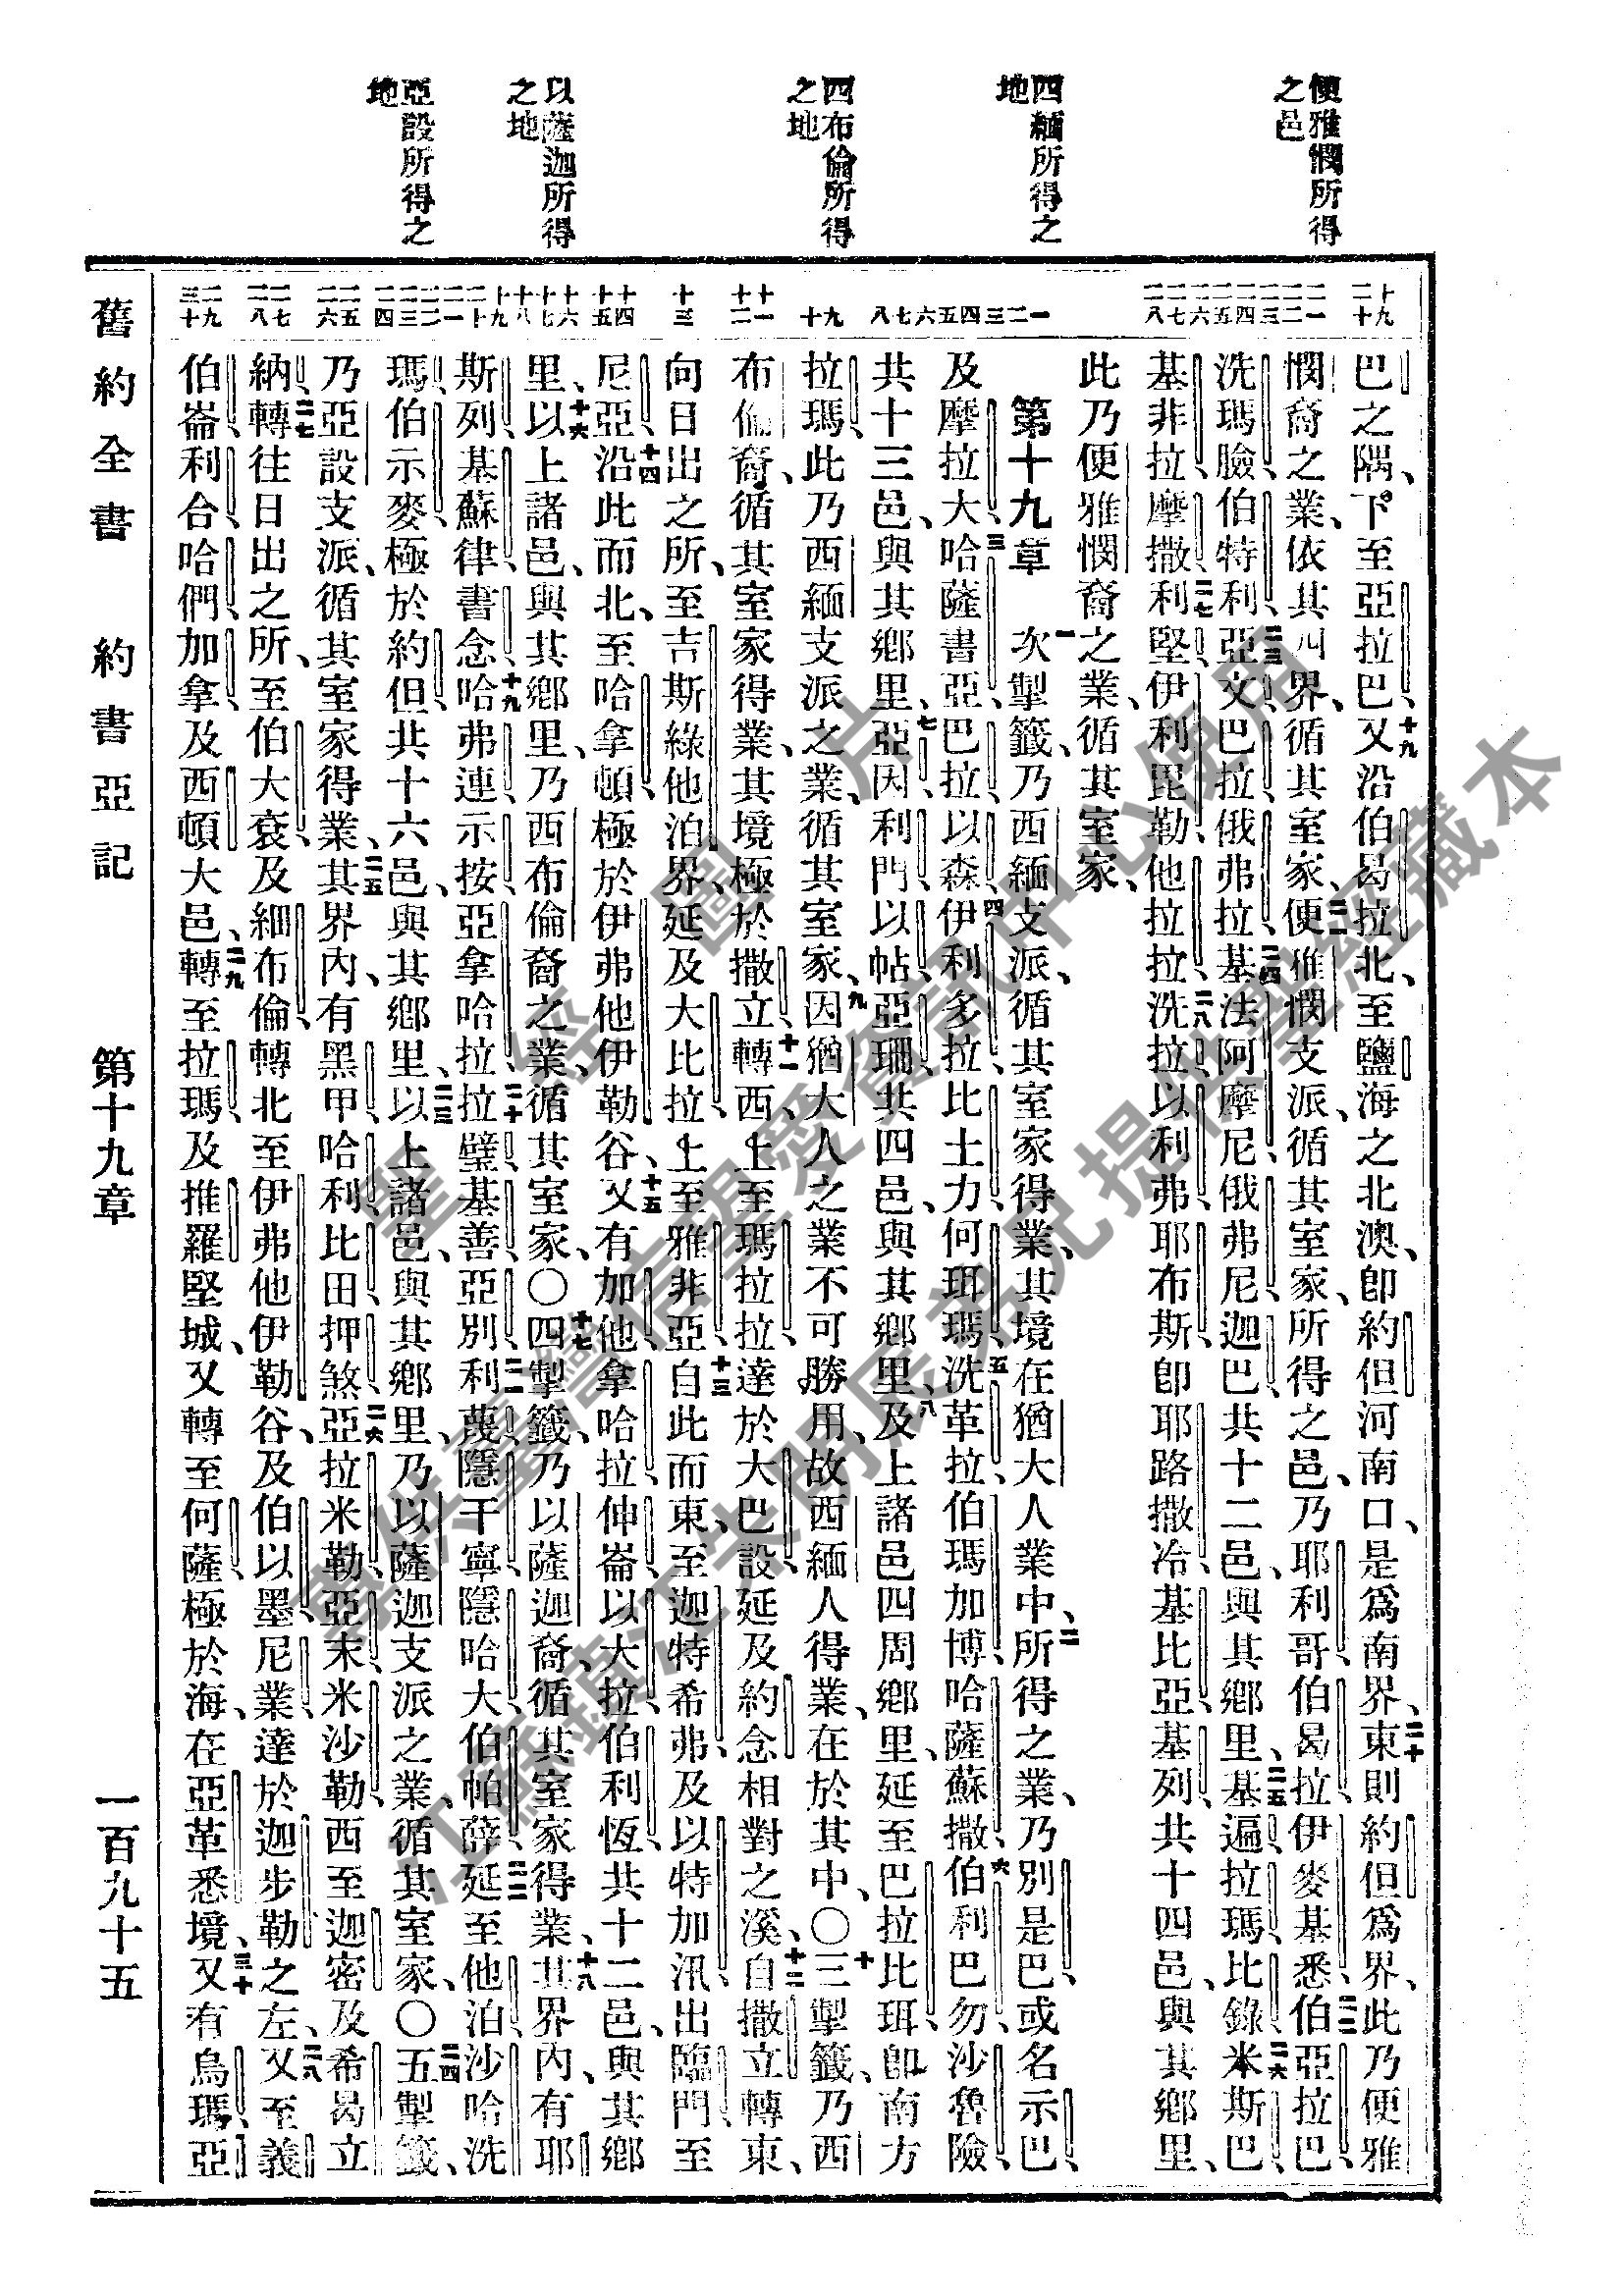 便雅憫所得
之邑
西緬所得之
地
西布倫所得
之地
以薩迦所得
之地
亞設所得之
地
十九 二十
二一 二二 二三 二四 二五 二六 二七 二八
一 二 三 四 五 六 七 八
九 十
十一 十二
十三
十四 十五
十六 十七 十八 十九 二十 二一 二二 二三 二四
二五 二六
二七 二八
二九 三十
巴之隅、下至亞拉巴、十九又沿伯曷拉北、至鹽海之北澳、卽約但河南口、是爲南界、二十東則約但爲界、此乃便雅
憫裔之業、依其四界、循其室家、二一便雅憫支派、循其室家、所得之邑、乃耶利哥伯曷拉伊麥基悉、二二伯亞拉巴
洗瑪臉伯特利、二三亞文巴拉俄弗拉、二四基法阿摩尼俄弗尼迦巴、共十二邑、與其鄉里、二五基遍拉瑪比錄、二六米斯巴
基非拉摩撒、二七利堅伊利毘勒他拉拉、二八洗拉以利弗耶布斯、卽耶路撒冷基比亞基列、共十四邑、與其鄉里、
此乃便雅憫裔之業、循其室家、
第十九章 一次掣籤、乃西緬支派、循其室家得業、其境在猶大人業中、二所得之業、乃別是巴、或名示巴、
及摩拉大、三哈薩書亞巴拉以森、四伊利多拉比土力何珥瑪、五洗革拉伯瑪加博哈薩蘇撒、六伯利巴勿沙魯險
共十三邑、與其鄉里、七亞因利門以帖亞珊、共四邑、與其鄉里、八及上諸邑四周鄉里、延至巴拉比珥、卽南方
拉瑪、此乃西緬支派之業、循其室家、九因猶大人之業不可勝用、故西緬人得業、在於其中、〇十三掣籤、乃西
布倫裔、循其室家得業、其境極於撒立、十一轉西、上至瑪拉拉、達於大巴設、延及約念相對之溪、十二自撒立轉東、
向日出之所、至吉斯綠他泊界、延及大比拉、上至雅非亞、十三自此而東、至迦特希弗、及以特加汛、出臨門、至
尼亞、十四沿此而北、至哈拿頓、極於伊弗他伊勒谷、十五又有加他拿哈拉伸崙以大拉伯利恆、共十二邑、與其鄉
里、十六以上諸邑、與其鄉里、乃西布倫裔之業、循其室家、〇十七四掣籤、乃以薩迦裔、循其室家得業、十八其界內、有耶
斯列基蘇律書念、十九哈弗連示按亞拿哈拉、二十拉璧基善亞別、二一利蔑隱干寧隱哈大伯帕薛、二二延至他泊沙哈洗
瑪伯示麥、極於約但、共十六邑、與其鄉里、二三以上諸邑、與其鄉里、乃以薩迦支派之業、循其室家、〇二四五掣籤、
乃亞設支派、循其室家得業、二五其界內、有黑甲哈利比田押煞、二六亞拉米勒亞末米沙勒、西至迦密及希曷立
納、二七轉往日出之所、至伯大袞、及細布倫、轉北至伊弗他伊勒谷、及伯以墨尼業、達於迦步勒之左、二八又至義
伯崙利合哈們加拿及西頓大邑、二九轉至拉瑪及推羅堅城、又轉至何薩、極於海、在亞革悉境、三十又有烏瑪亞
舊約全書 約書亞記 第十九章 一百九十五
聖經圖片
專供臺灣信望愛資訊中心使用
江蘇鎮江朱明辰弟兄提供聖經藏本